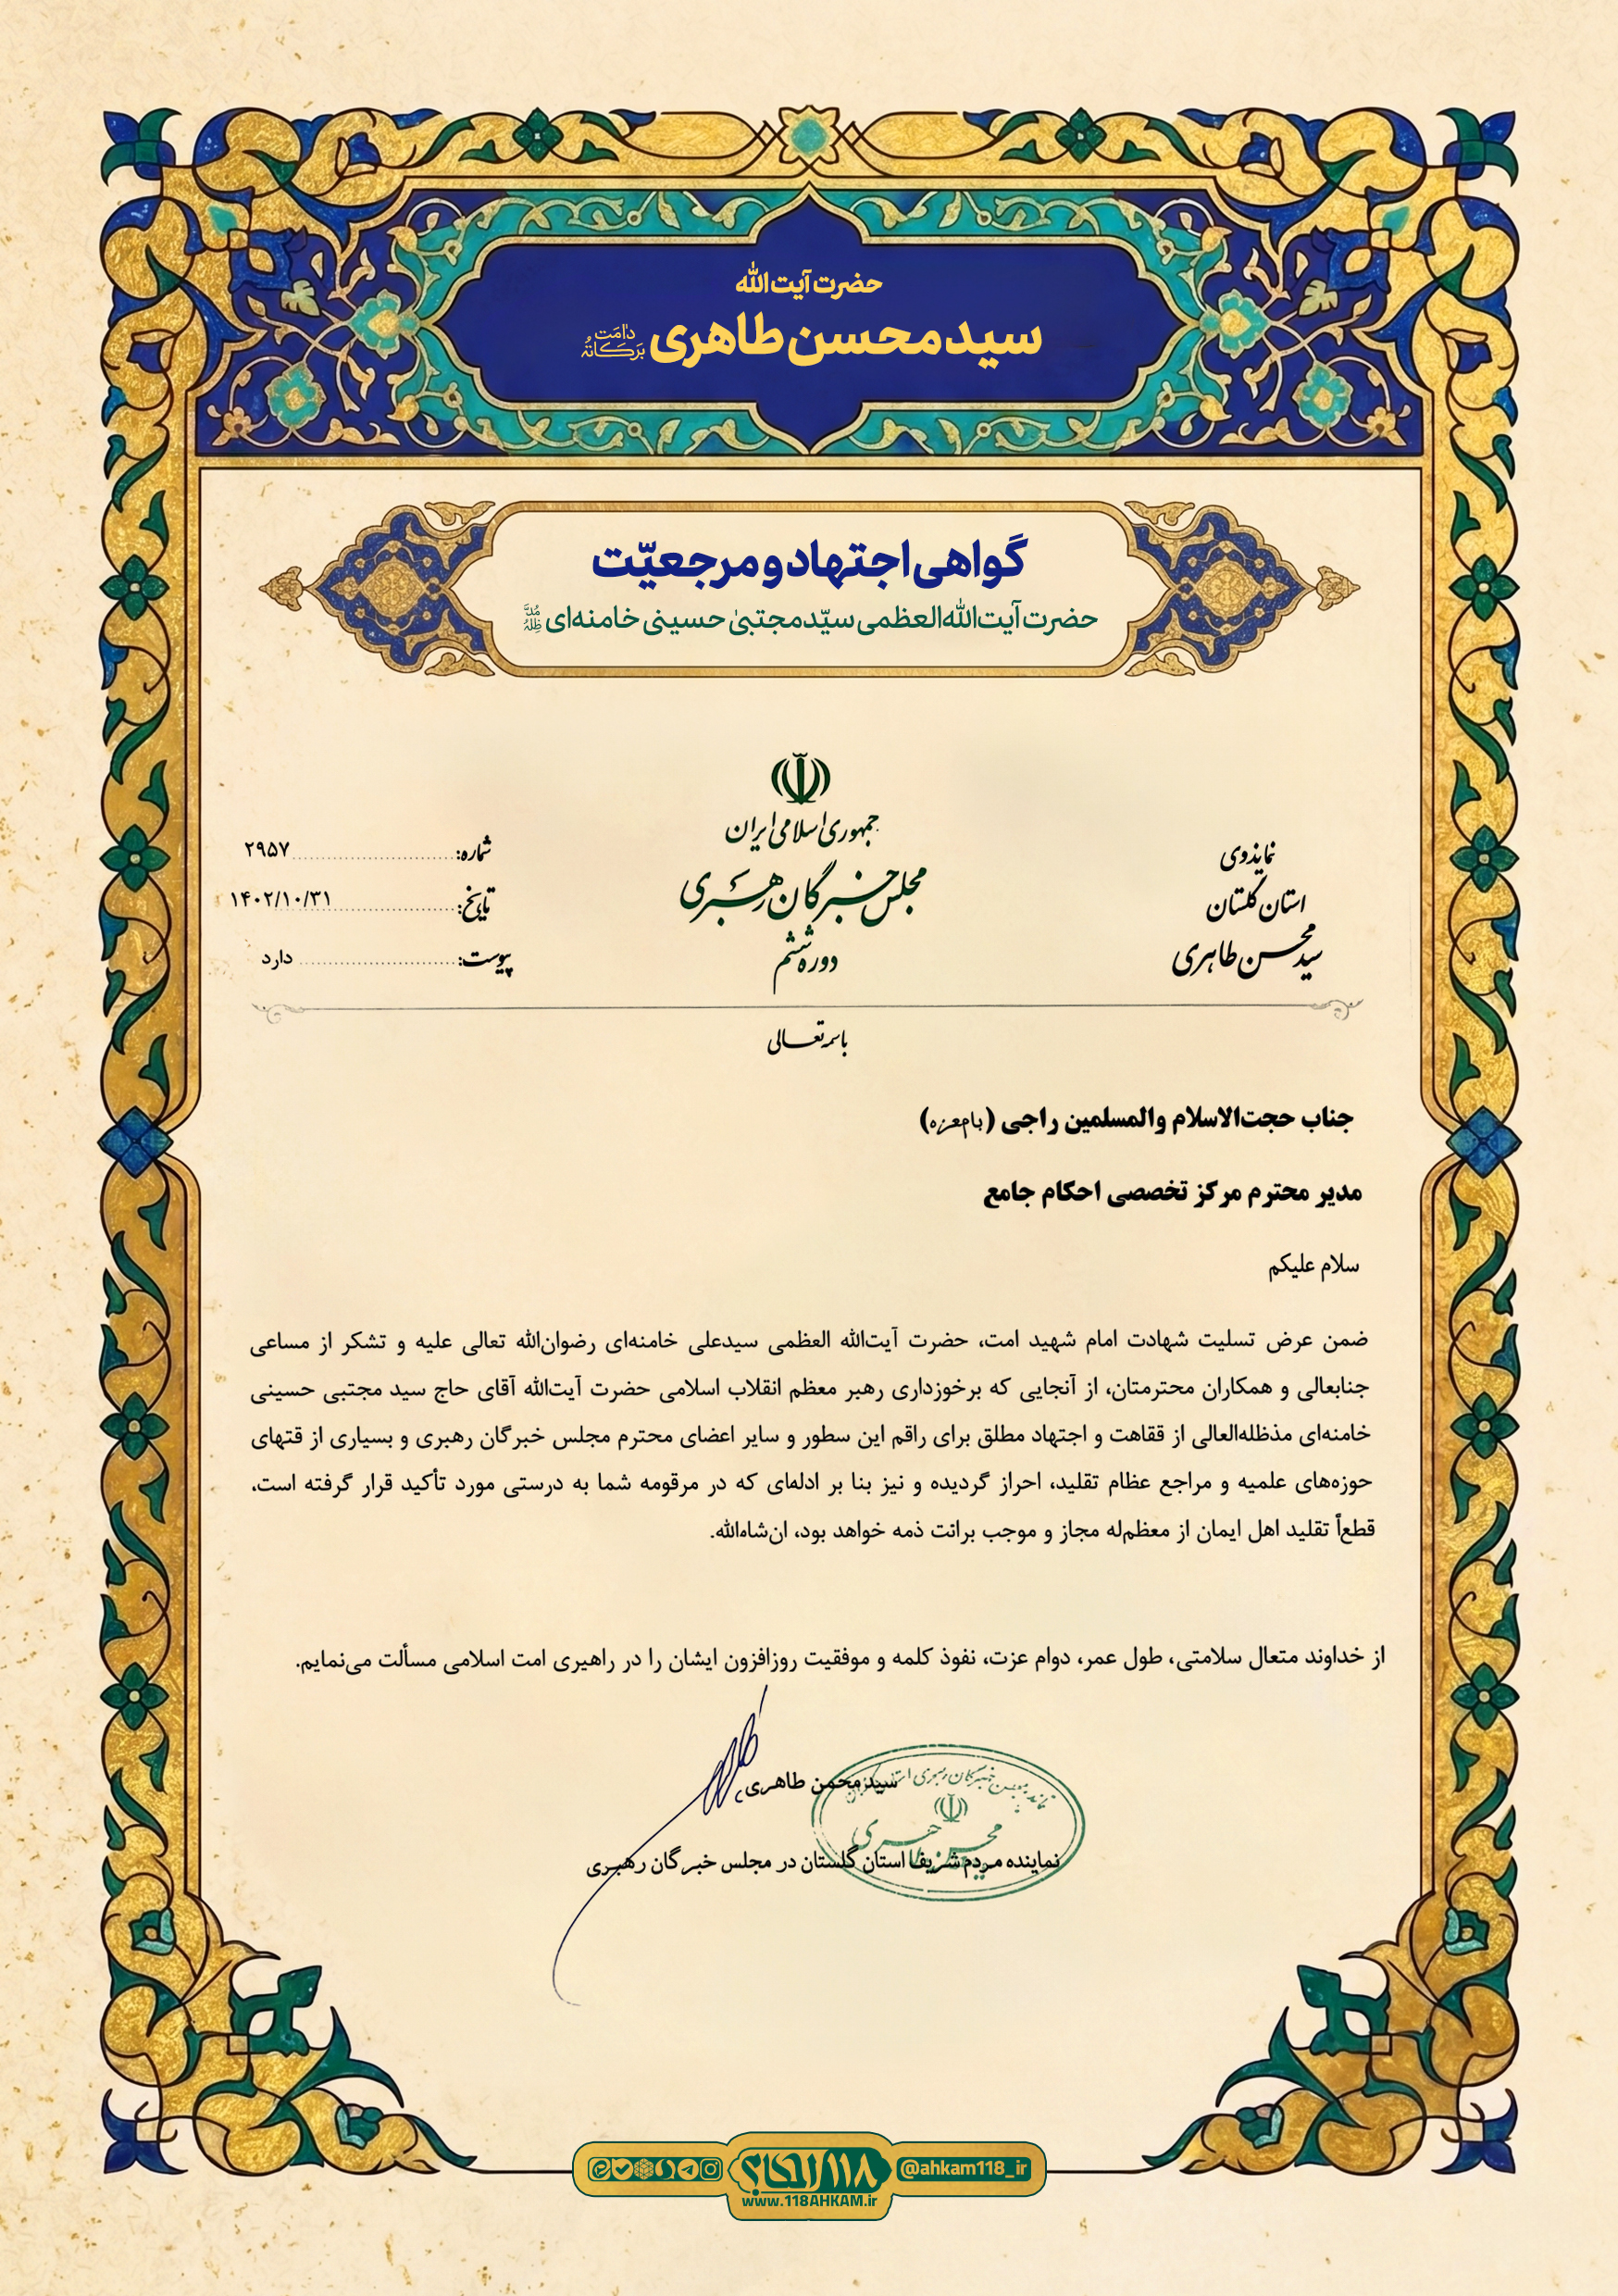 حضرت آیت‌الله
سید محسن طاهری دامت برکاته
گواهی اجتهاد و مرجعیّت
حضرت آیت‌الله‌العظمی سیّد مجتبیٰ حسینی خامنه‌ای مدّ ظلّه
جمهوری اسلامی ایران
مجلس خبرگان رهبری
دوره ششم
استان گلستان
سید محسن طاهری
شماره: ۲۹۵۷
تاریخ: ۱۴۰۲/۱۰/۳۱
پیوست: دارد
باسمه تعالی
جناب حجت‌الاسلام والمسلمین راجی
مدیر محترم مرکز تخصصی احکام جامع
سلام علیکم
ضمن عرض تسلیت شهادت امام شهید امت، حضرت آیت‌الله العظمی سیدعلی خامنه‌ای رضوان‌الله تعالی علیه و تشکر از مساعی
جنابعالی و همکاران محترمتان، از آنجایی که برخوزداری رهبر معظم انقلاب اسلامی حضرت آیت‌الله آقای حاج سید مجتبی حسینی
خامنه‌ای مذظله‌العالی از ققاهت و اجتهاد مطلق برای راقم این سطور و سایر اعضای محترم مجلس خبرگان رهبری و بسیاری از قتهای
حوزه‌های علمیه و مراجع عظام تقلید، احراز گردیده و نیز بنا بر ادله‌ای که در مرقومه شما به درستی مورد تأکید قرار گرفته است،
قطعاً تقلید اهل ایمان از معظم‌له مجاز و موجب برانت ذمه خواهد بود، ان‌شاءالله.
از خداوند متعال سلامتی، طول عمر، دوام عزت، نفوذ کلمه و موفقیت روزافزون ایشان را در راهیری امت اسلامی مسألت می‌نمایم.
سید محمن طاهری
نماینده مردم شریف استان گلستان در مجلس خبرگان رهبری
@ahkam118_ir
۱۱۸ احکام
www.118AHKAM.ir